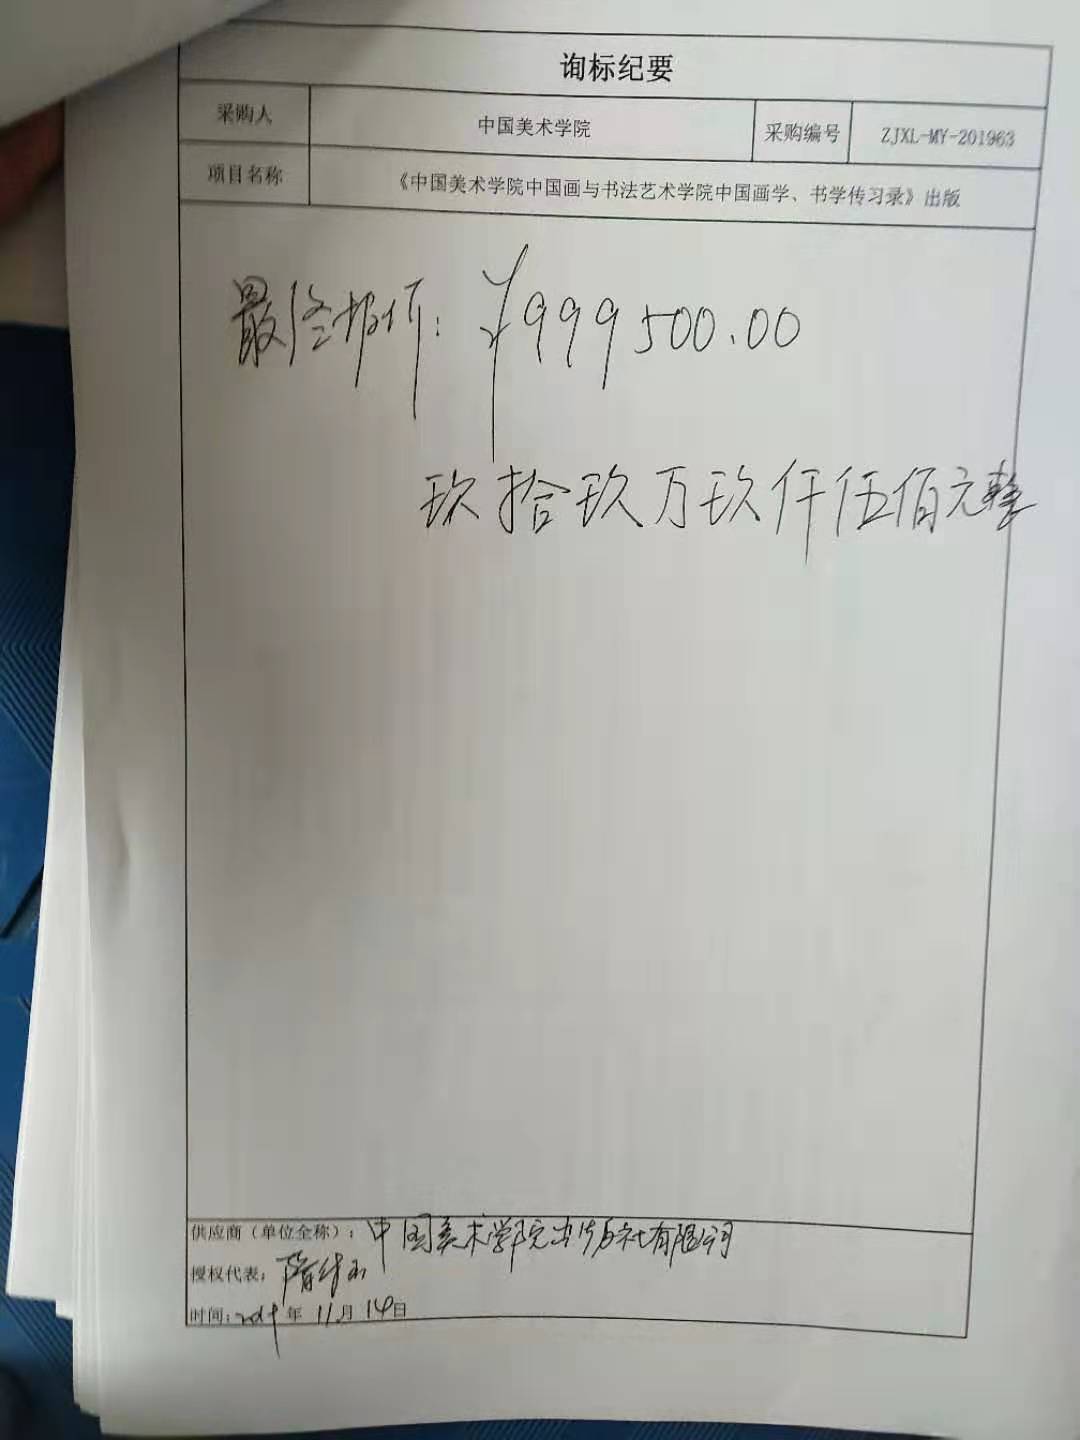 询标纪要
采购人 中国美术学院 采购编号 ZJXL-MY-201963
项目名称 《中国美术学院中国画与书法艺术学院中国画学、书学传习录》出版
最终报价：¥999500.00
玖拾玖万玖仟伍佰元整
供应商（单位全称）：中国美术学院出版社有限公司
授权代表：
时间：2019年11月14日